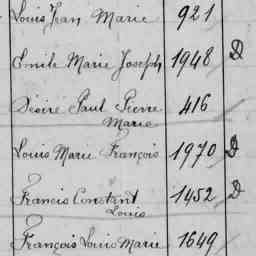 Louis Jean Marie 921
Emile Marie Joseph 1948 D
Désiré Paul Pierre 416
Marie
Louis Marie François 1970 D
Francis Constant 1452 D
Louis
François Louis Marie 1649